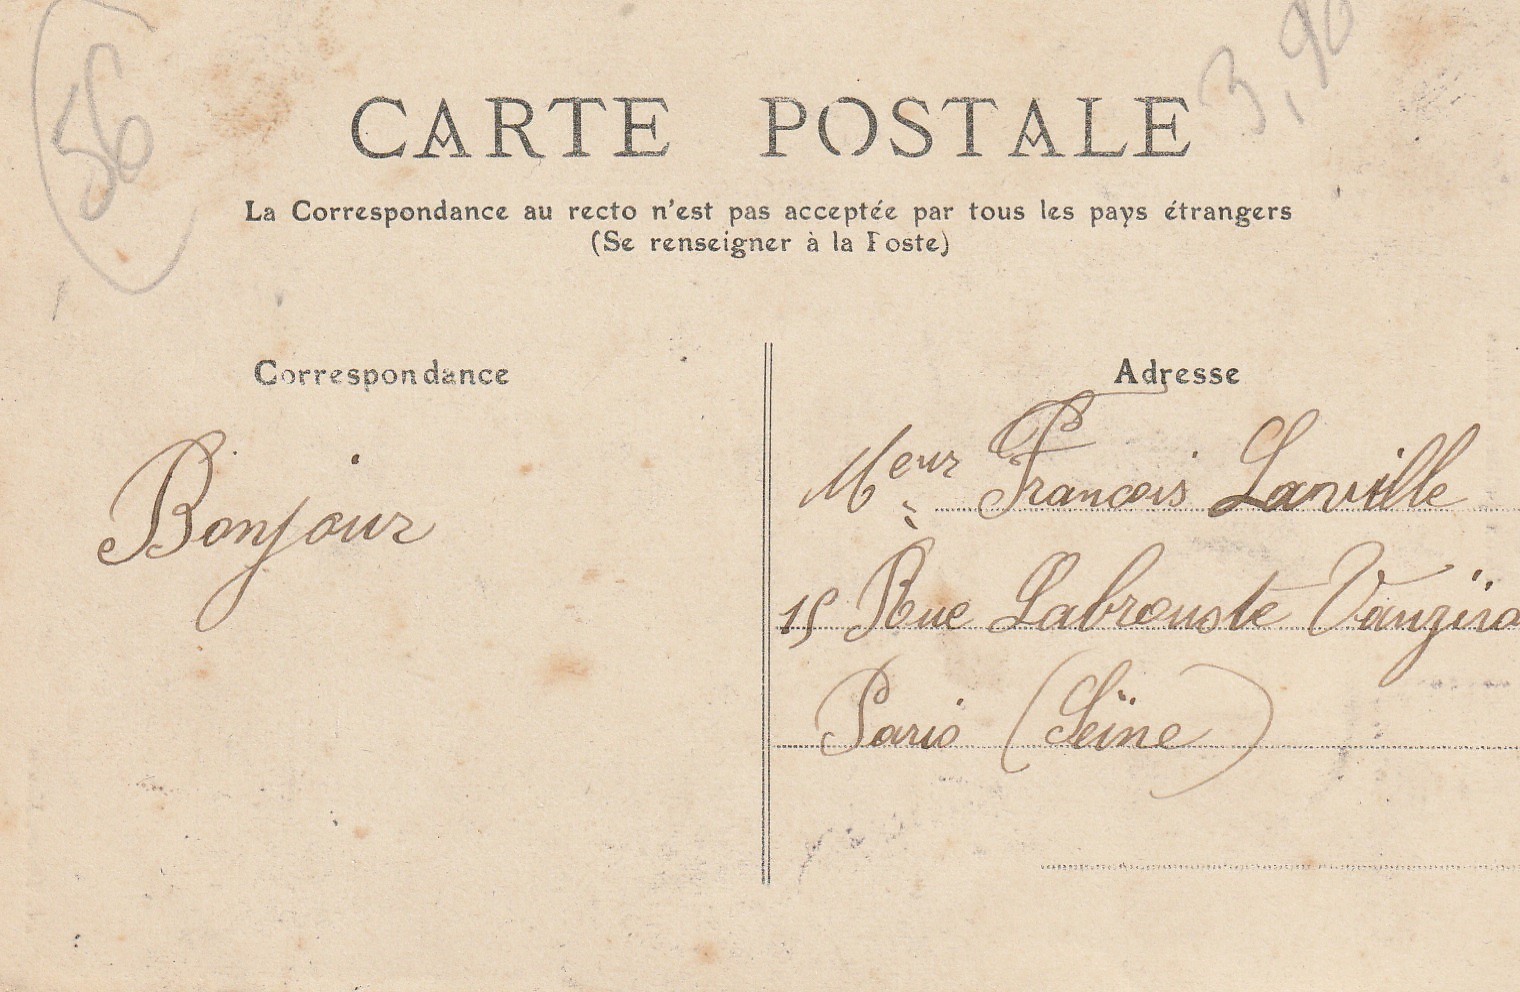 56
3,90
CARTE POSTALE
La Correspondance au recto n'est pas acceptée par tous les pays étrangers
(Se renseigner à la Poste)
Correspondance
Adresse
Bonjour
Meur François Lanville
15 Rue Labrouste Vaugira
Paris (Seine)